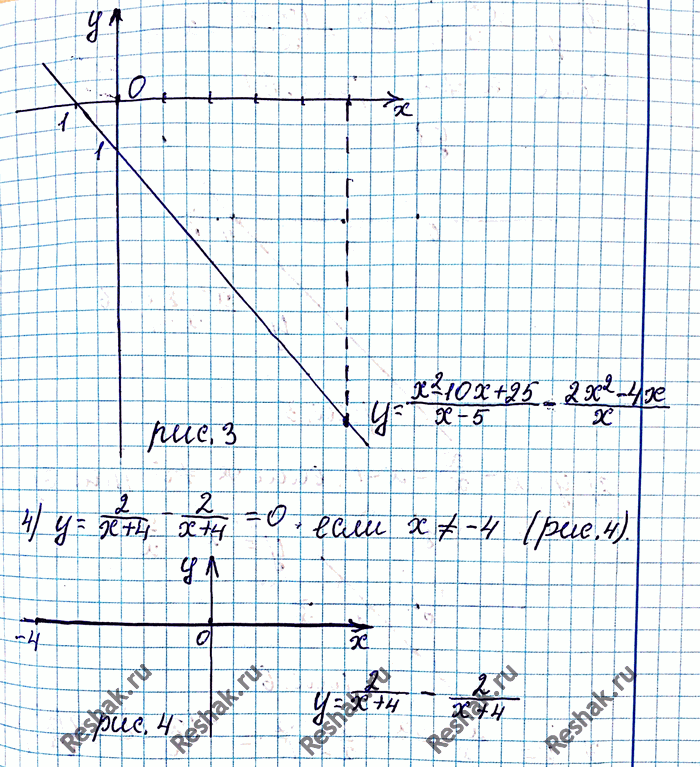 y
0
x
1
1
y = (x²-10x+25)/(x-5) - (2x²-4x)/x
рис. 3
4) y = 2/(x+4) - 2/(x+4) = 0, если x ≠ -4 (рис. 4).
y
-4 0 x
y = 2/(x+4) - 2/(x+4)
рис. 4
Reshak.ru Reshak.ru Reshak.ru Reshak.ru Reshak.ru